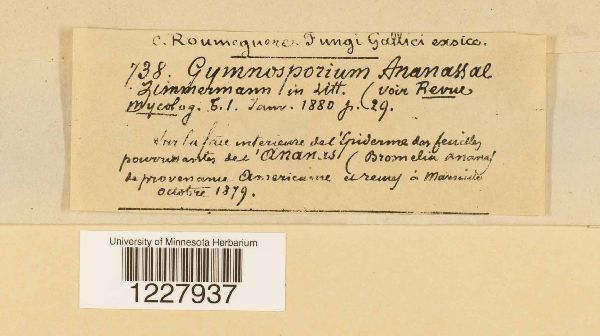 C. Roumeguere. Fungi Gallici exsicc.
738. Gymnosporium Ananassae
Zimmermann in litt. (voir Revue
Mycolog. T. 1. Janv. 1880 p. 29.
Sur la face interieure de l'Epiderme des feuilles
pourrissantes de l'Ananas (Bromelia Ananas
de provenance Americaine et à Marseille
octobre 1879.
University of Minnesota Herbarium
1227937